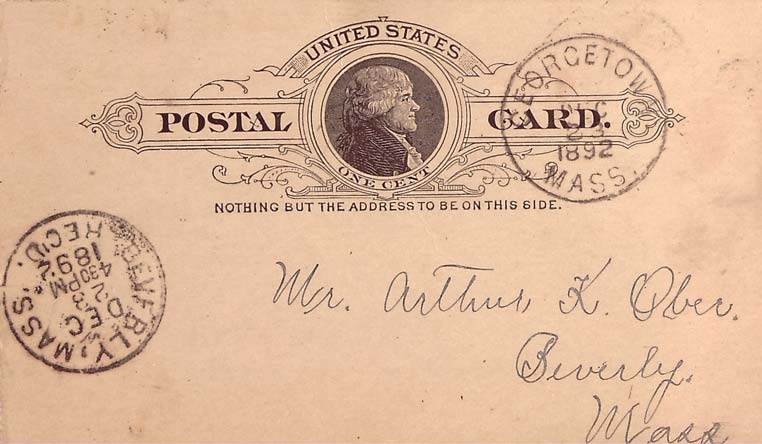 UNITED STATES
POSTAL CARD.
ONE CENT
NOTHING BUT THE ADDRESS TO BE ON THIS SIDE.
GEORGETOWN
DEC
23
1892
MASS.
BEVERLY, MASS.
DEC
23
430 PM
1892
REC'D.
Mr. Arthur K. Ober.
Beverly.
Mass